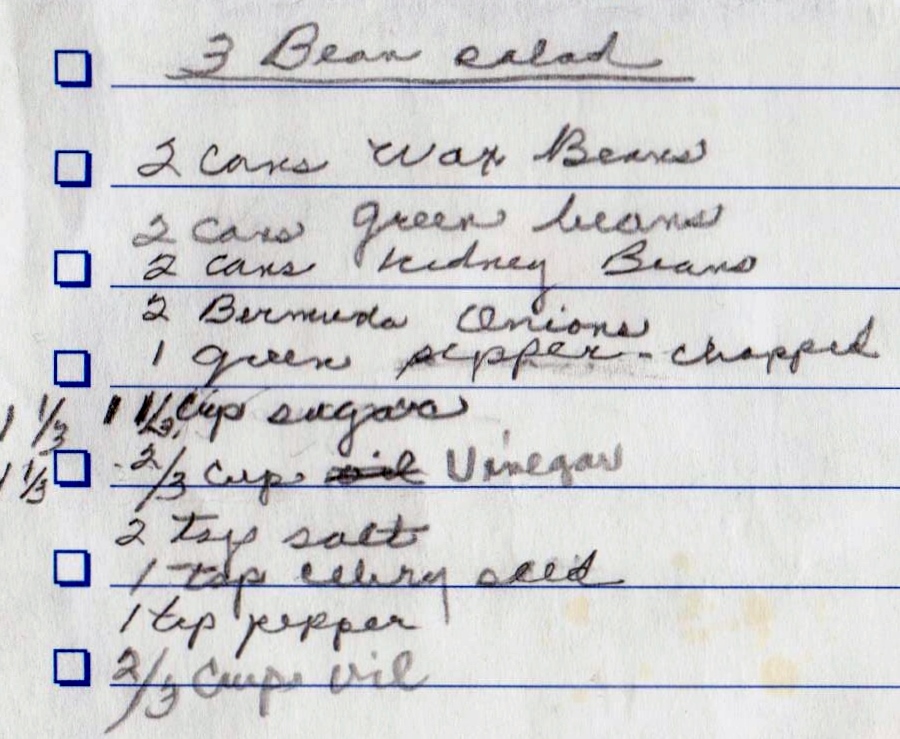 3 Bean salad
2 cans Wax Beans
2 cans green beans
2 cans Kidney Beans
2 Bermuda Onions
1 green pepper - chopped
1 1/3 1 1/3 cup sugar
1 1/3 2/3 cup oil Vinegar
2 tsp salt
1 tsp celery seed
1 tsp pepper
2/3 Cup oil